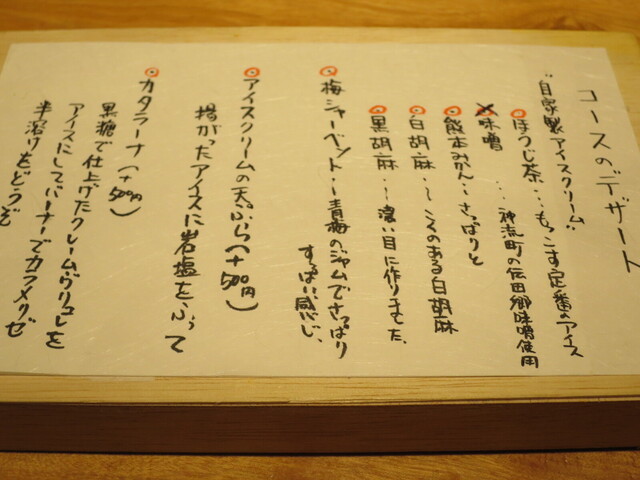 コースのデザート
"自家製アイスクリーム"
ほうじ茶…もっこす定番のアイス
味噌…神流町の伝田郷味噌使用
熊本みかん〜さっぱりと
白胡麻〜こくのある白胡麻
黒胡麻〜濃い目に作りました。
梅シャーベット〜青梅のジャムでさっぱり
すっぱい感じ、
アイスクリームの天ぷら(+500円)
揚がったアイスに岩塩をふって
カタラーナ(+500円)
黒糖で仕上げたクレームブリュレを
アイスにしてバーナーでカラメリゼ
半溶りをどうぞ